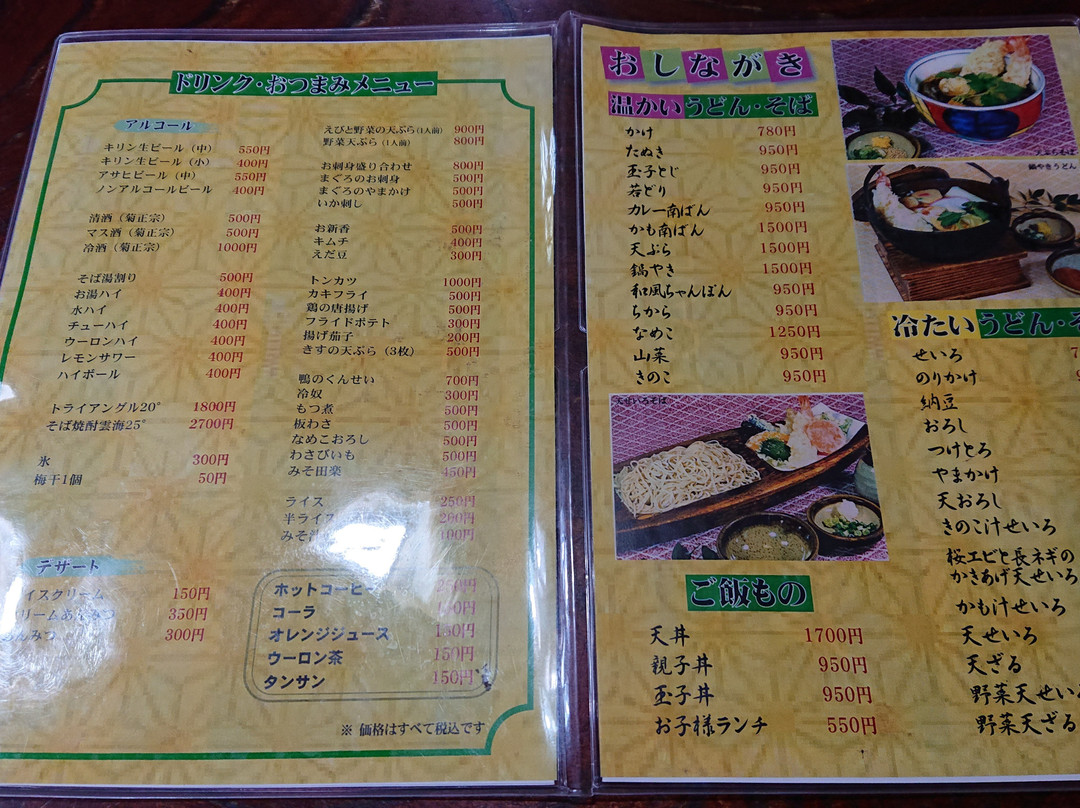 ドリンク・おつまみメニュー
アルコール
キリン生ビール（中） 550円
キリン生ビール（小） 400円
アサヒビール（中） 550円
ノンアルコールビール 400円
清酒（菊正宗） 500円
マス酒（菊正宗） 500円
冷酒（菊正宗） 1000円
そば湯割り 500円
お湯ハイ 400円
水ハイ 400円
チューハイ 400円
ウーロンハイ 400円
レモンサワー 400円
ハイボール 400円
トライアングル20° 1800円
そば焼酎雲海25° 2700円
氷 300円
梅干1個 50円
デザート
イスクリーム 150円
リームあんみつ 350円
んみつ 300円
えびと野菜の天ぷら（1人前） 900円
野菜天ぷら（1人前） 800円
お刺身盛り合わせ 800円
まぐろのお刺身 500円
まぐろのやまかけ 500円
いか刺し 500円
お新香 500円
キムチ 400円
えだ豆 300円
トンカツ 1000円
カキフライ 500円
鶏の唐揚げ 500円
フライドポテト 300円
揚げ茄子 200円
きすの天ぷら（3枚） 500円
鴨のくんせい 700円
冷奴 300円
もつ煮 500円
板わさ 500円
なめこおろし 500円
わさびいも 500円
みそ田楽 450円
ライス 250円
半ライス 200円
みそ汁 100円
ホットコーヒー 250円
コーラ
オレンジジュース 150円
ウーロン茶 150円
タンサン 150円
※ 価格はすべて税込です
おしながき
温かいうどん・そば
かけ 780円
たぬき 950円
玉子とじ 950円
若どり 950円
カレー南ばん 950円
かも南ばん 1500円
天ぷら 1500円
鍋やき 1500円
和風ちゃんぽん 950円
ちから 950円
なめこ 1250円
山菜 950円
きのこ 950円
天せいろそば
ご飯もの
天丼 1700円
親子丼 950円
玉子丼 950円
お子様ランチ 550円
天ぷらそば
鍋やきうどん
冷たいうどん・そ
せいろ 7
のりかけ 9
納豆
おろし
つけとろ
やまかけ
天おろし
きのこ汁せいろ
桜エビと長ネギの
かきあげ天せいろ
かも汁せいろ
天せいろ
天ざる
野菜天せいろ
野菜天ざる